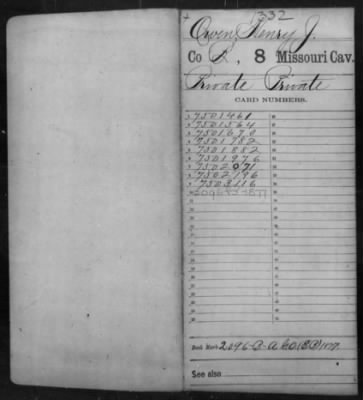 332
Owen, Henry J.
Co 8 Missouri Cav.
Private Private
CARD NUMBERS.
7501461
7501564
7501670
7501782
7501882
7501976
7502071
7502196
7503116
Book Mark 2096-
See also